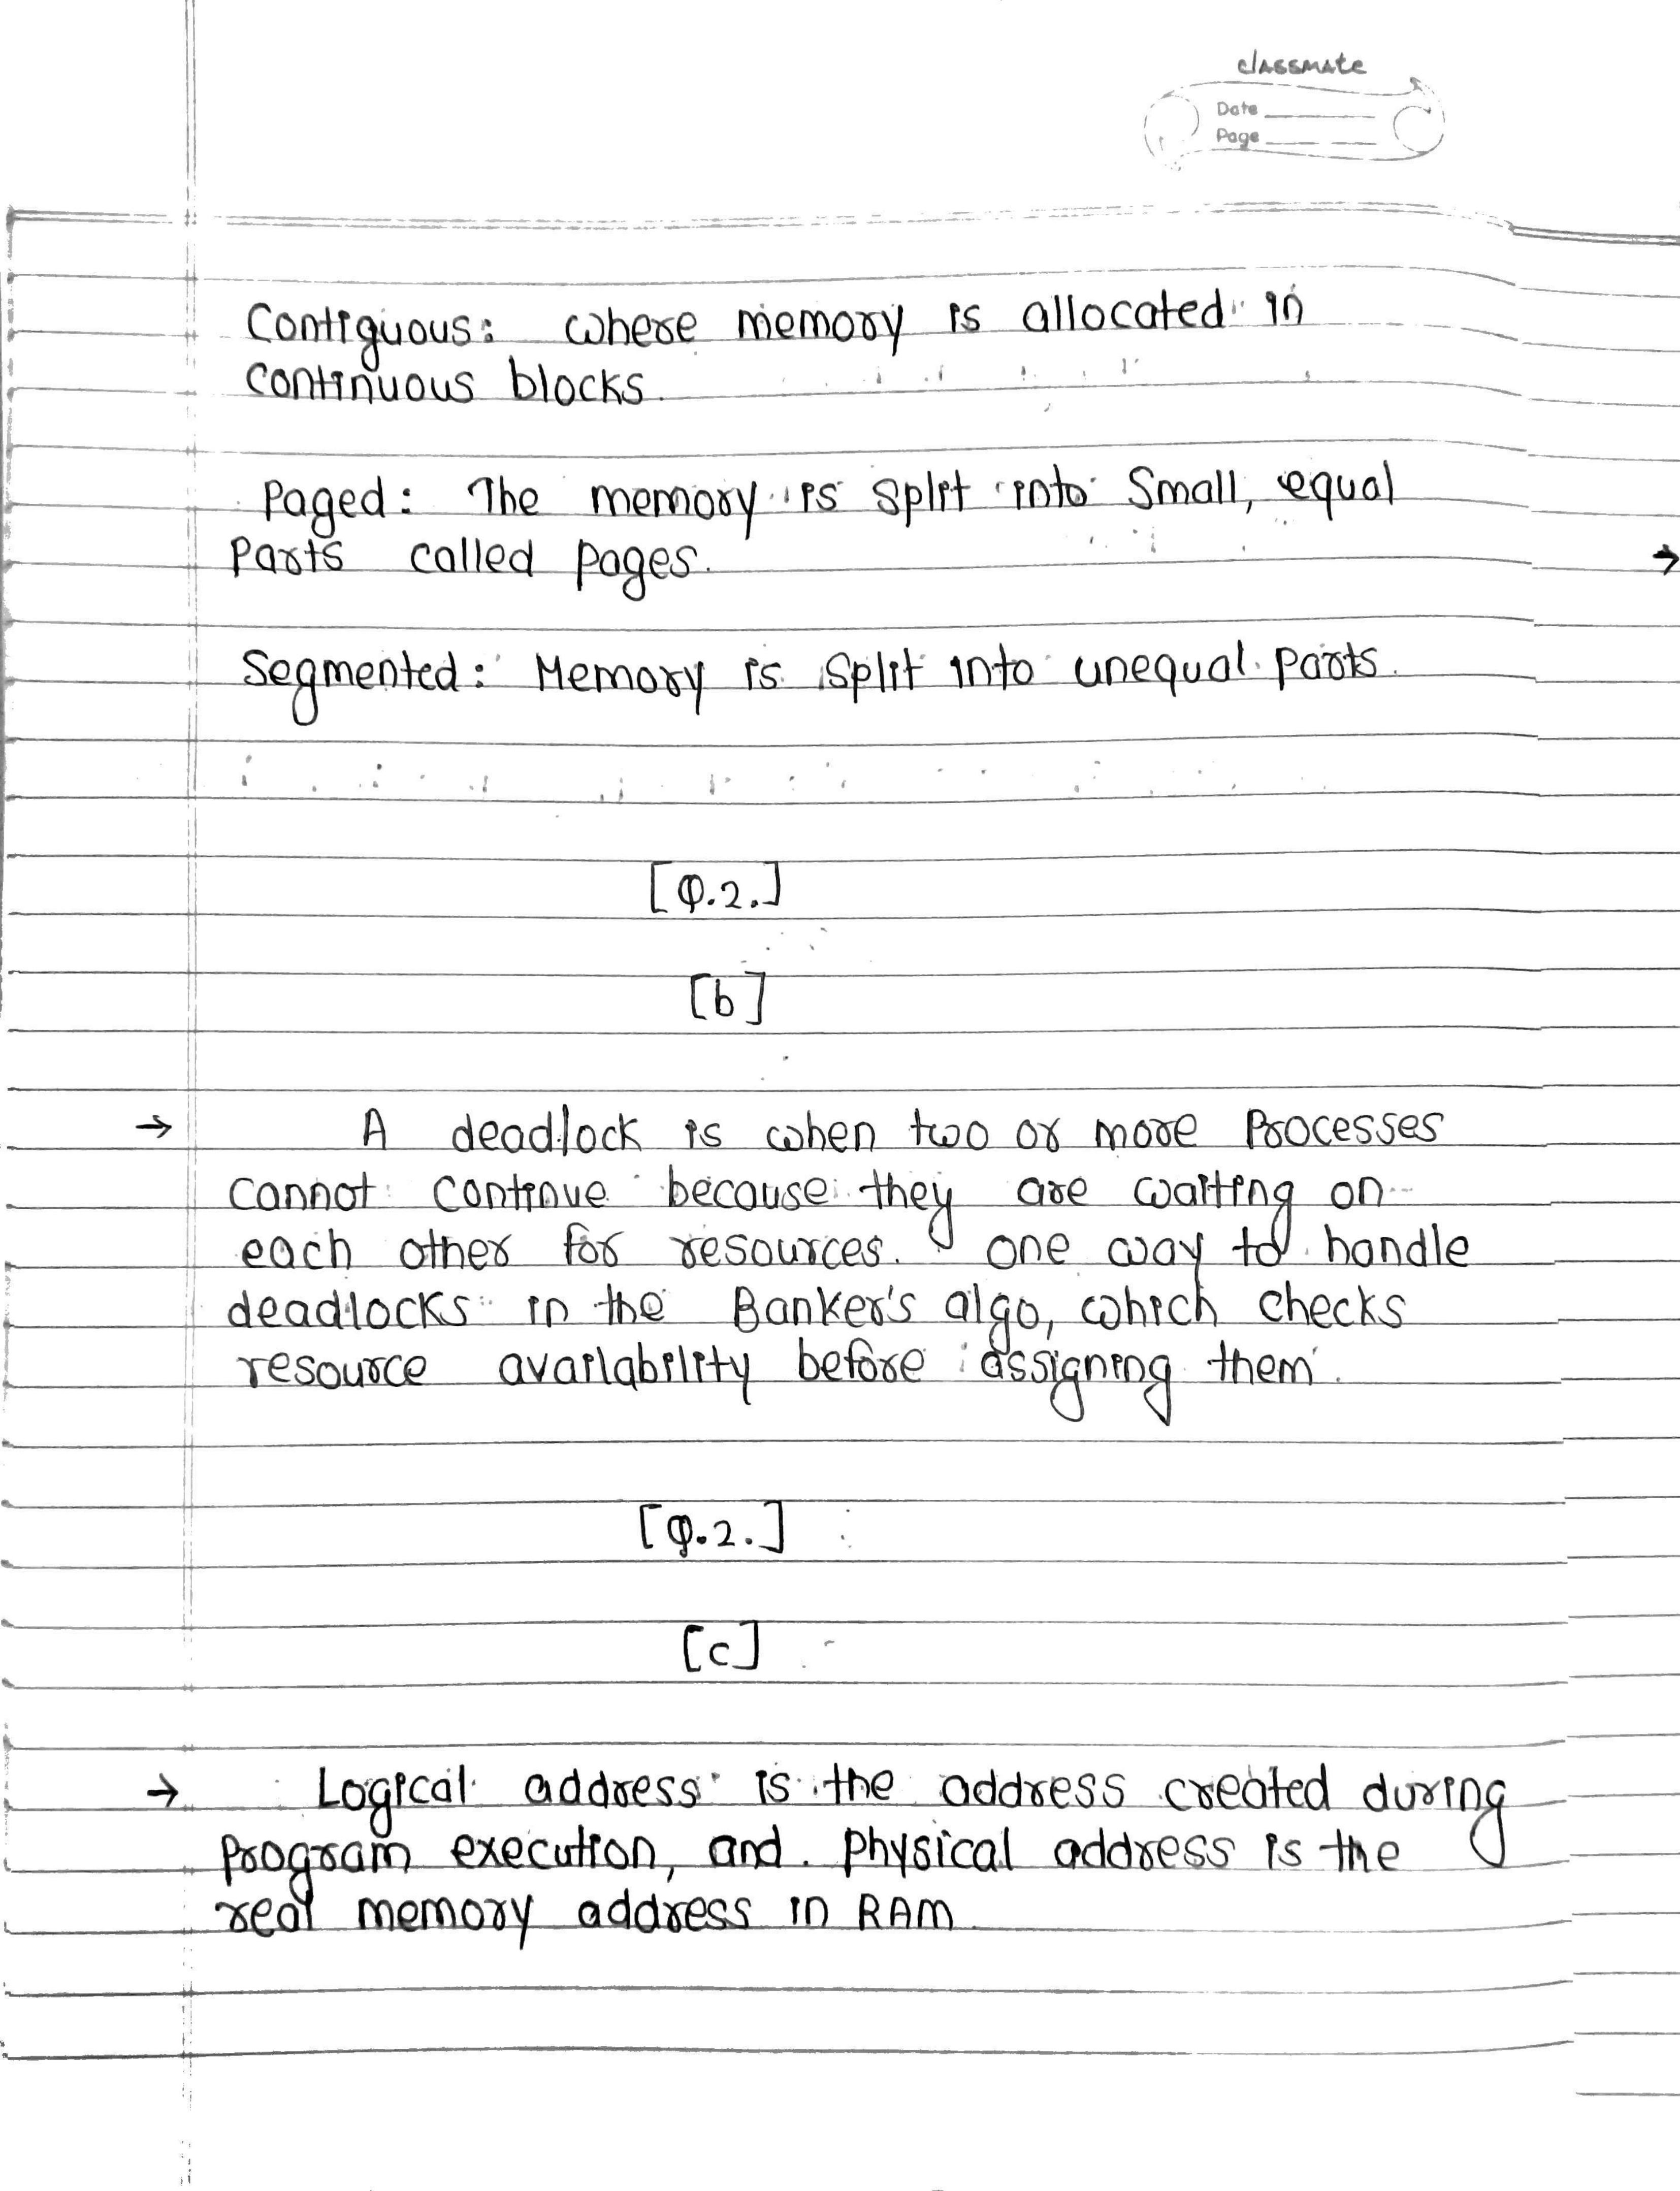 classmate
Date
Page
Contiguous: where memory is allocated in
continuous blocks.
Paged: The memory is split into small, equal
parts called pages.
Segmented: Memory is split into unequal parts.
[Q.2.]
[b]
→ A deadlock is when two or more processes
cannot continue because they are waiting on
each other for resources. one way to handle
deadlocks in the Banker's algo, which checks
resource availability before assigning them.
[Q.2.]
[c]
→ Logical address is the address created during
program execution, and physical address is the
real memory address in RAM